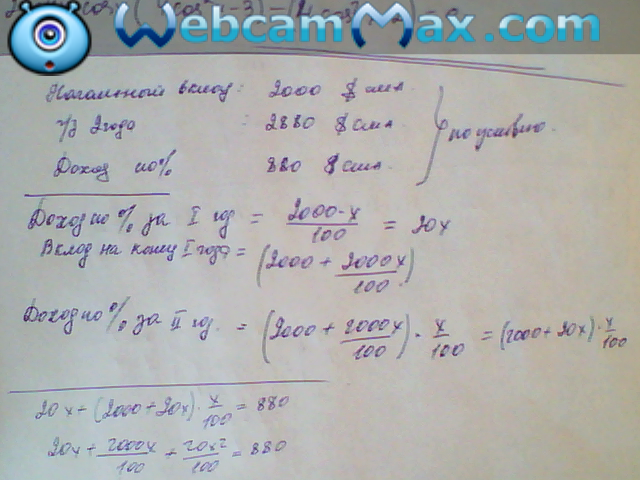 WebcamMax.com
Начальный вклад: 2000 $ сша
ч/з 2 года : 2880 $ сша
Доход по % 880 $ сша
} по условию.
Доход по % за I год = 2000·x/100 = 20x
Вклад на конец I года = (2000 + 2000x/100)
Доход по % за II год. = (2000 + 2000x/100) · x/100 = (2000 + 20x) · x/100
20x + (2000 + 20x) · x/100 = 880
20x + 2000x/100 + 20x²/100 = 880